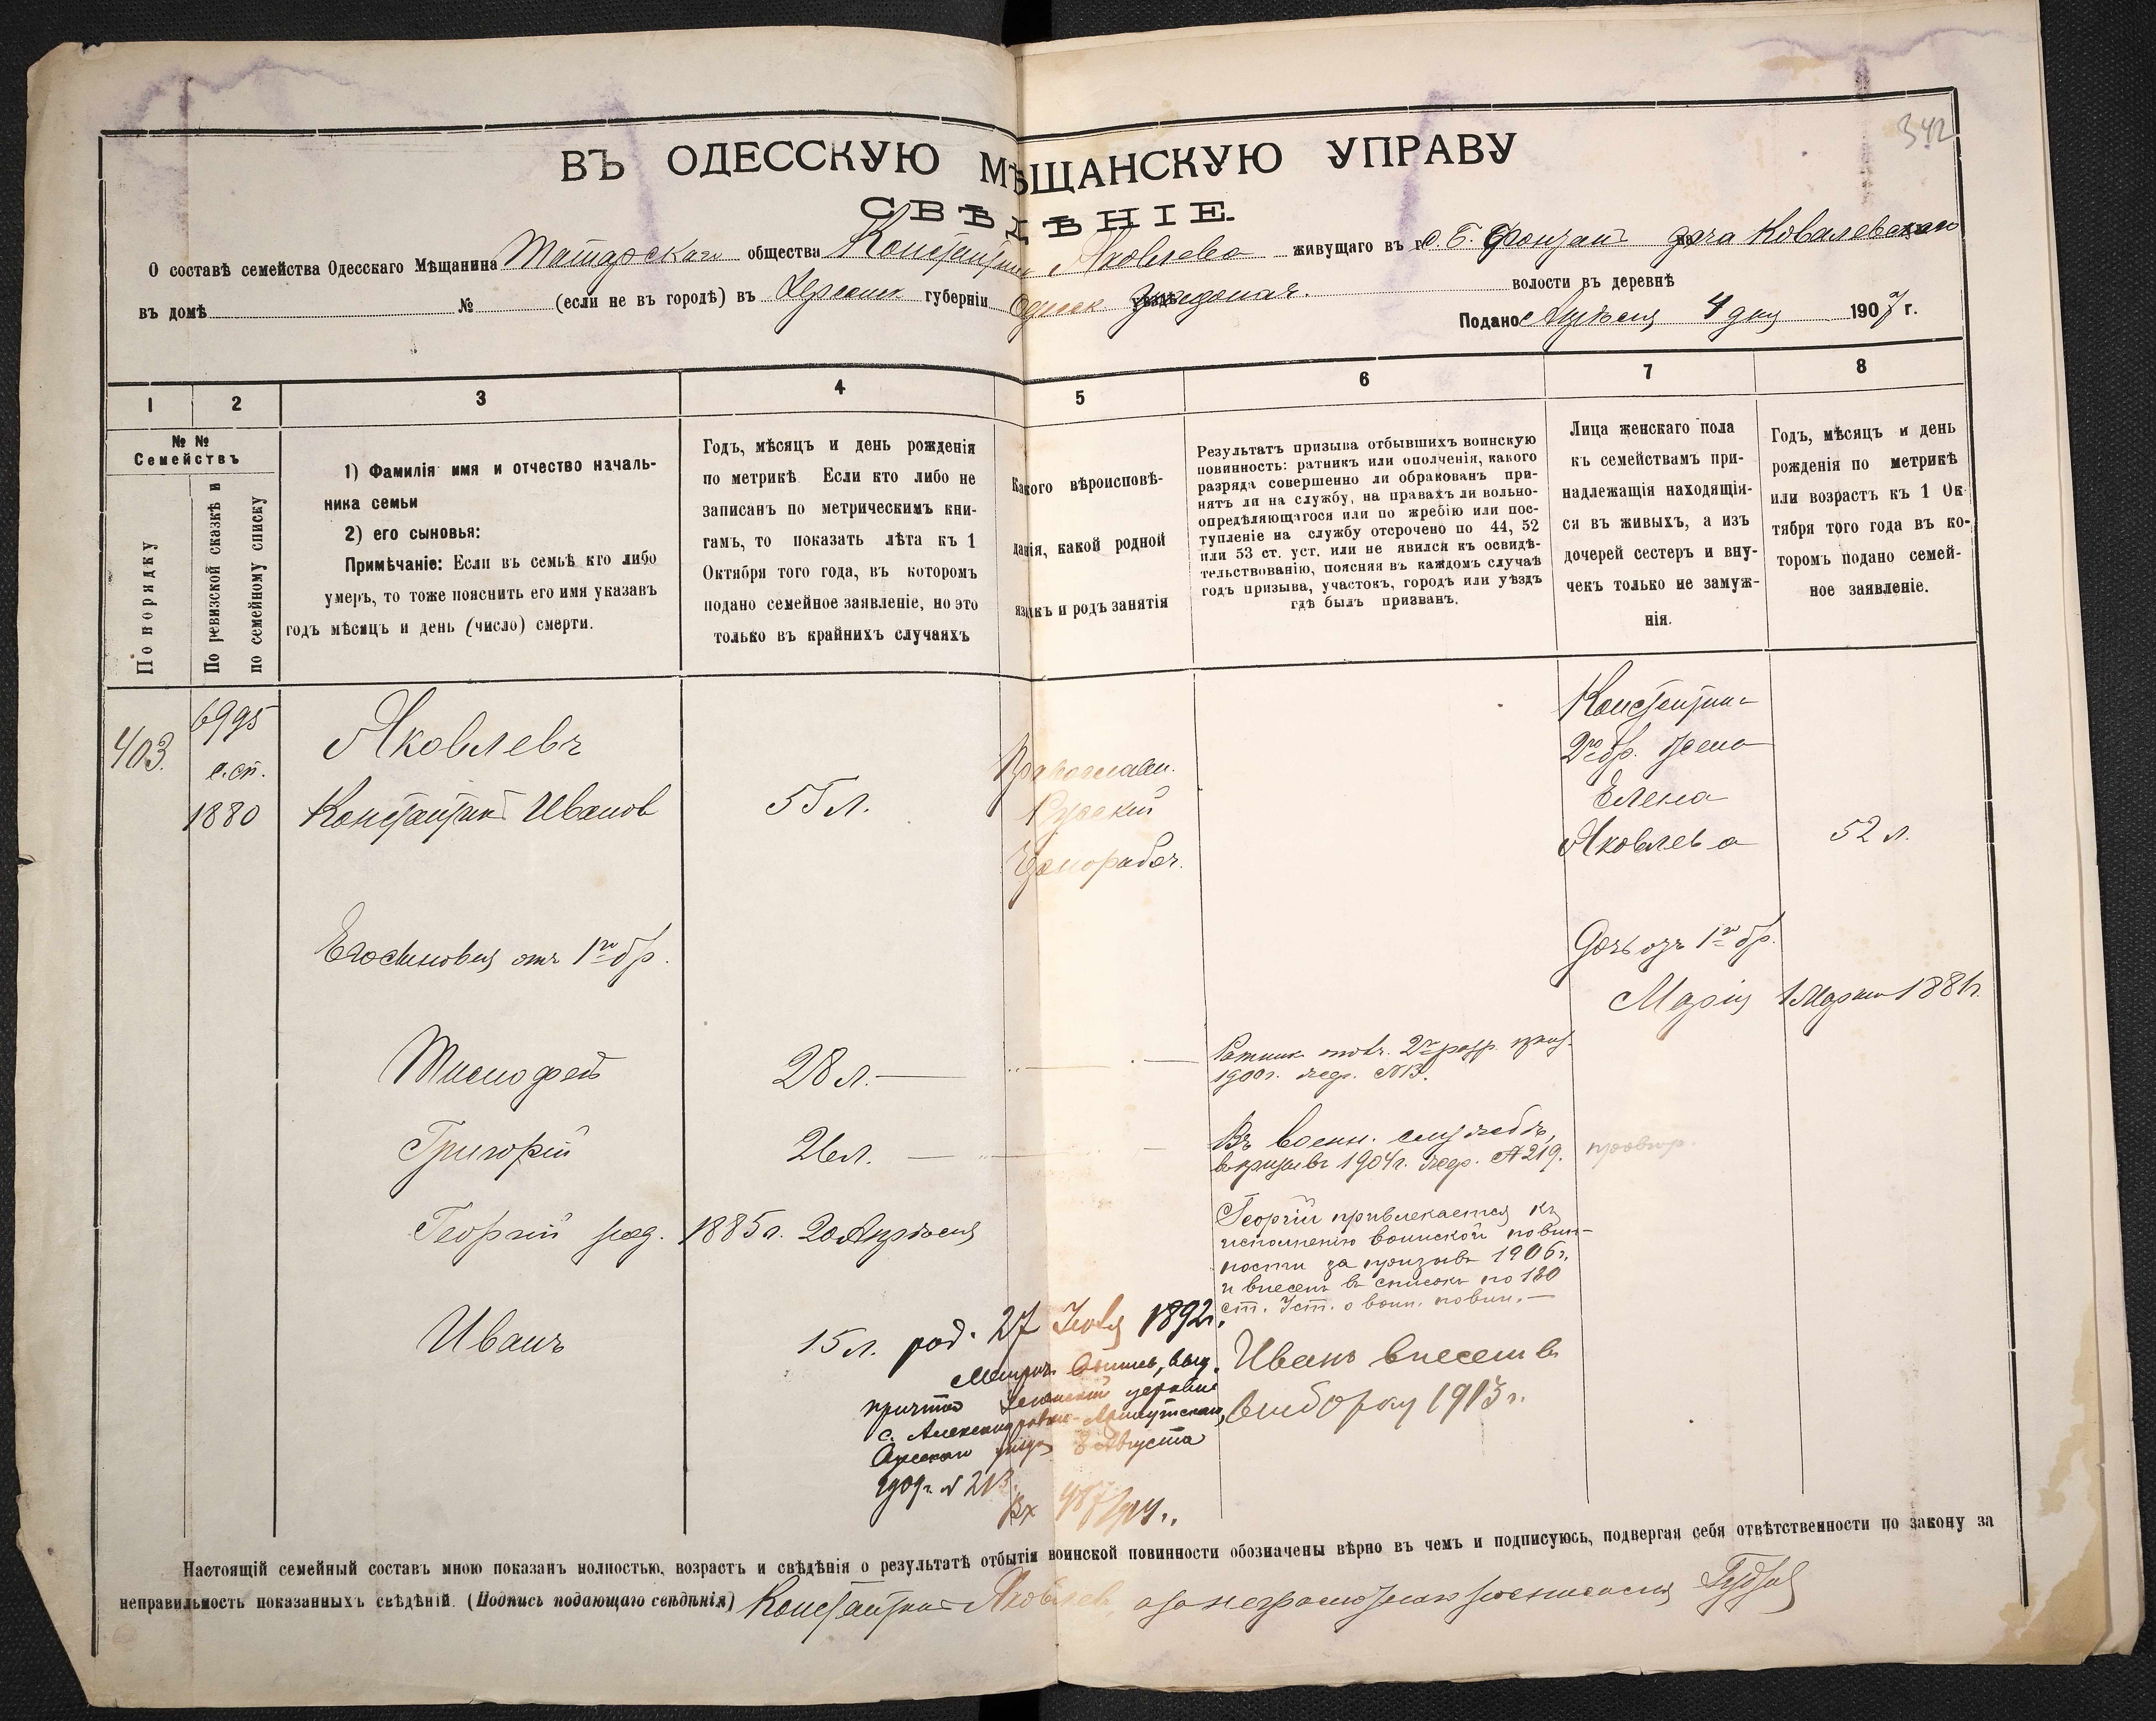 342
ВЪ ОДЕССКУЮ МѢЩАНСКУЮ УПРАВУ
СВѢДѢНІЕ.
О составѣ семейства Одесскаго Мѣщанина Татарскаго общества Константина Яковлева живущаго въ г. Б. Фонтан дача Ковалевскаго
въ домѣ № (если не въ городѣ) въ Херсонск губерніи Одесск волости въ деревнѣ
Подано Апрѣля 4 дня 1907 г.
1 2 3 4 5 6 7 8
№ №
Семействъ
По порядку
По ревизской сказкѣ и
по семейному списку
1) Фамилія имя и отчество началь-
ника семьи
2) его сыновья:
Примѣчаніе: Если въ семьѣ кто либо
умеръ, то тоже пояснить его имя указавъ
годъ мѣсяцъ и день (число) смерти.
Годъ, мѣсяцъ и день рожденія
по метрикѣ Если кто либо не
записанъ по метрическимъ кни-
гамъ, то показать лѣта къ 1
Октября того года, въ котором
подано семейное заявленіе, но это
только въ крайнихъ случаяхъ
Какого вѣроисповѣ-
данія, какой родной
языкъ и родъ занятія
Результатъ призыва отбывшихъ воинскую
повинность: ратникъ или ополченія, какого
разряда совершенно ли обракованъ при-
нятъ ли на службу, на правахъ ли вольно-
опредѣляющагося или по жребію или пос-
тупленіе на службу отсрочено по 44, 52
или 53 ст. уст. или не явился къ освидѣ-
тельствованію, поясняя въ каждомъ случаѣ
годъ призыва, участокъ, городъ или уѣздъ
гдѣ былъ призванъ.
Лица женскаго пола
къ семействамъ при-
надлежащія находящія-
ся въ живыхъ, а изъ
дочерей сестеръ и вну-
чекъ только не замуж-
нія.
Годъ, мѣсяцъ и день
рожденія по метрикѣ
или возрастъ къ 1 Ок-
тября того года въ ко-
торомъ подано семей-
ное заявленіе.
403.
6995
с. сп.
1880
Яковлевъ
Константин Иванов
55 л.
Православн.
Русскій
Чернорабоч.
Константина
2го бр. жена
Елена
Яковлева
52 л.
Его сыновья отъ 1го бр.
Дочь отъ 1го бр.
Марія 1 Марта 1881 г.
Тимофей
28 л.
Ратник ополч. 2го разр. приз.
1900 г. жер. №13.
Григорій
26 л.
Въ военн. службѣ,
въ призывъ 1904 г. жер. №219.
Георгій род. 1885 г. 20 Апрѣля
Георгій привлекается къ
исполненію воинской повин-
ности за призывъ 1906 г.
и внесен въ списокъ по 180
ст. Уст. о воин. повин.
Иванъ
15 л. род. 27 Іюля 1892 г.
Метрич. выпись, выд.
причтом церкви
с. Александровки
Одесскаго уѣзда 8 Августа
1909 г. №213
Вх
Иванъ внесен въ
выборку 1913 г.
Настоящій семейный составъ мною показанъ полностью, возрастъ и свѣдѣнія о результатѣ отбытія воинской повинности обозначены вѣрно въ чемъ и подписуюсь, подвергая себя отвѣтственности по закону за
неправильность показанныхъ свѣдѣній. (Подпись подающаго свѣдѣнія) Константин Яковлев, а за неграмотнаго росписался